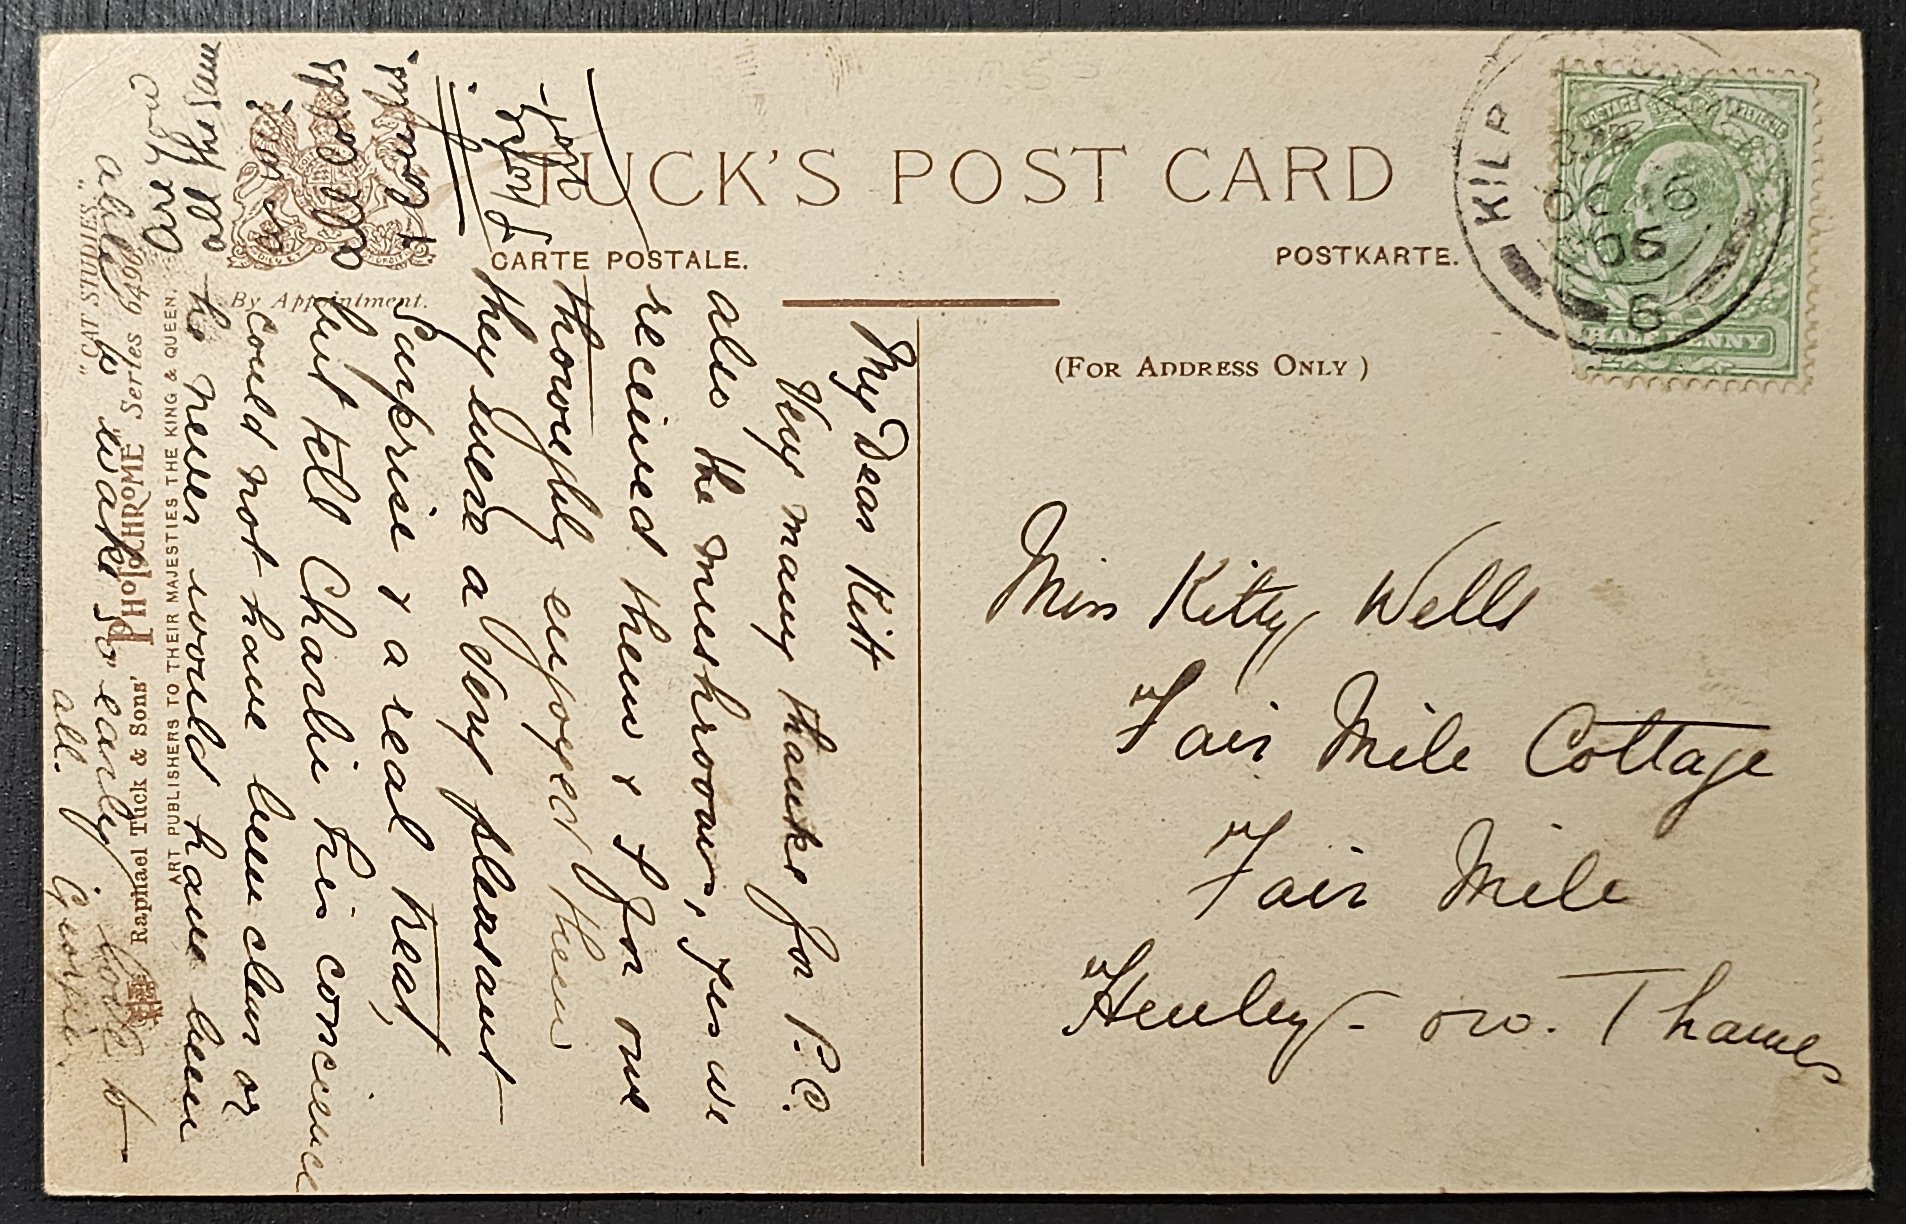 TUCK'S POST CARD
CARTE POSTALE.
POSTKARTE.
By Appointment.
(FOR ADDRESS ONLY)
POSTAGE REVENUE
HALF PENNY
KILB
OC 6
06
6
Miss Kitty Wells
Fair Mile Cottage
Fair Mile
Henley-on-Thames
My Dear Kit
Very many thanks for P.C.
also the mushrooms, yes we
received them & I for one
thoroughly enjoyed them
they were a very pleasant
surprise & a real treat,
but tell Charlie his concience
could not have been clear or
he never would have been
able to wake so early love to
all. Georgie.
are you
all the same
as we?
all colds
& coughs.
I hope
not
"CAT STUDIES"
Raphael Tuck & Sons' PHOTOCHROME Series 6490
ART PUBLISHERS TO THEIR MAJESTIES THE KING & QUEEN.